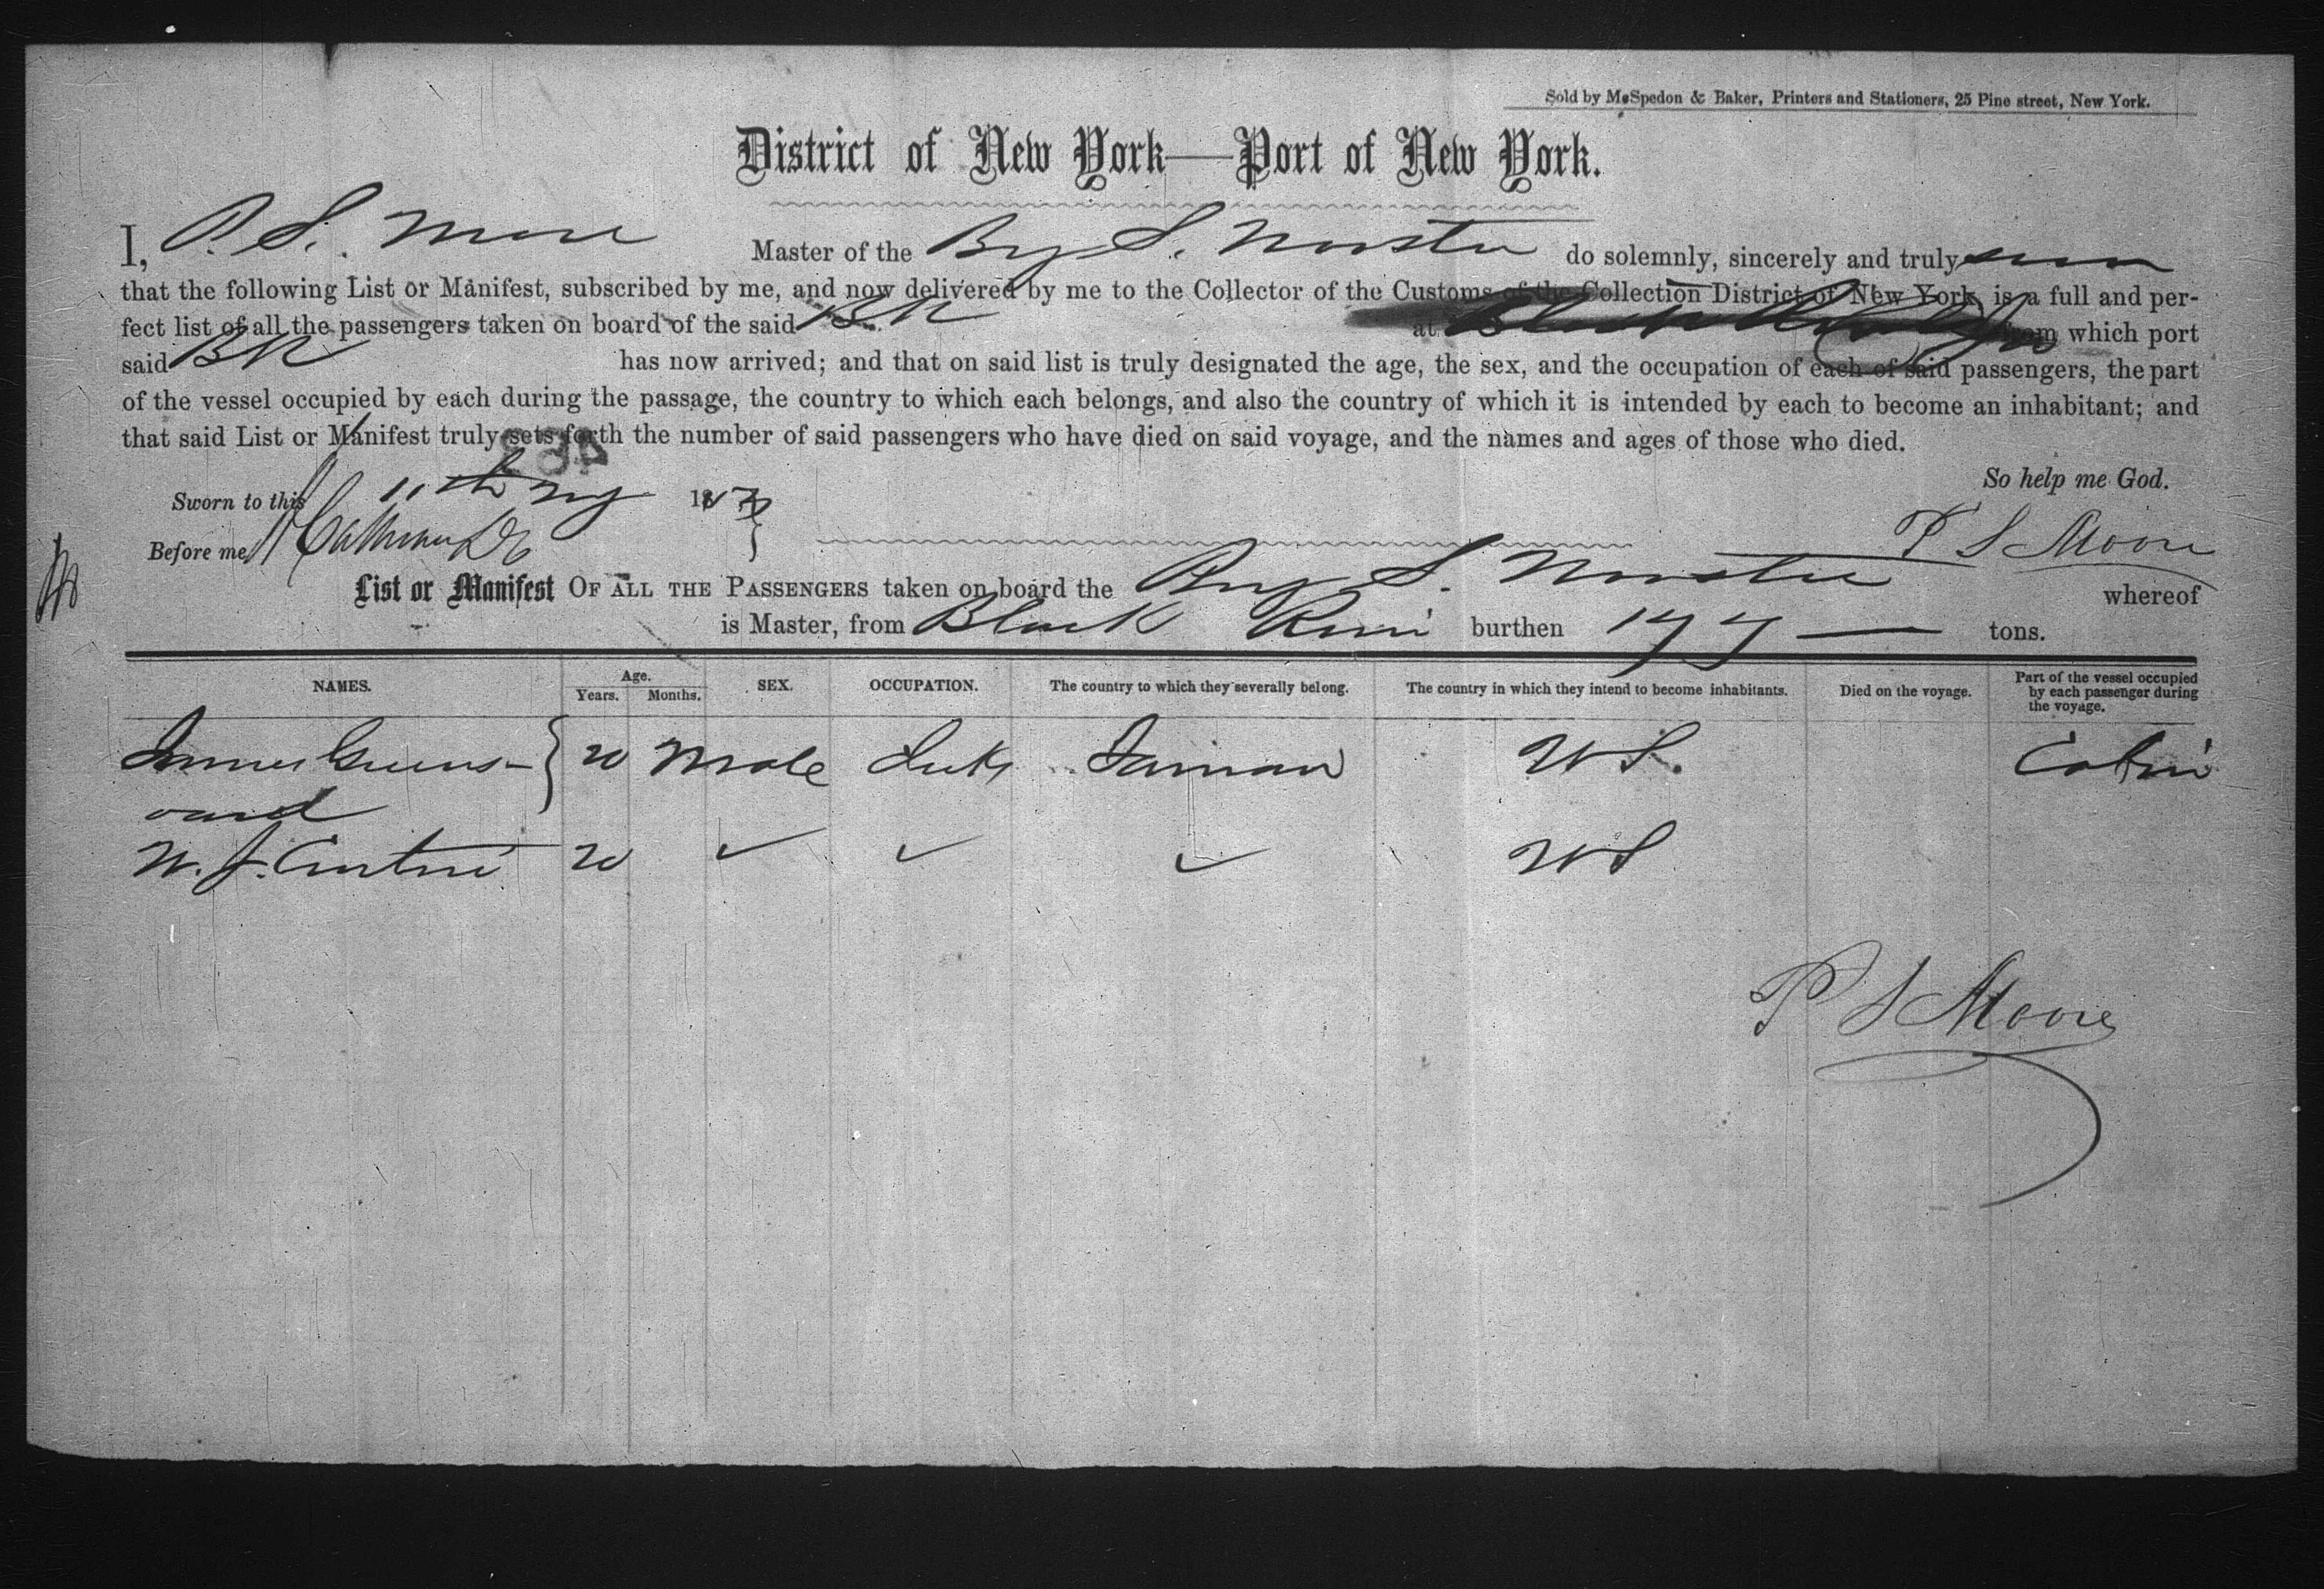 Sold by McSpedon & Baker, Printers and Stationers, 25 Pine street, New York.
District of New York—Port of New York.
I, P. S. Moore Master of the Brg S. do solemnly, sincerely and truly swear
that the following List or Manifest, subscribed by me, and now delivered by me to the Collector of the Customs of the Collection District of New York, is a full and per-
fect list of all the passengers taken on board of the said at Black River from which port
said has now arrived; and that on said list is truly designated the age, the sex, and the occupation of each of said passengers, the part
of the vessel occupied by each during the passage, the country to which each belongs, and also the country of which it is intended by each to become an inhabitant; and
that said List or Manifest truly sets forth the number of said passengers who have died on said voyage, and the names and ages of those who died.
So help me God.
Sworn to this 11th 187
Before me P S Moore
List or Manifest OF ALL THE PASSENGERS taken on board the Brg S. whereof
is Master, from Black River burthen 177 — tons.
NAMES. Age. Years. Months. SEX. OCCUPATION. The country to which they severally belong. The country in which they intend to become inhabitants. Died on the voyage. Part of the vessel occupied by each passenger during the voyage.
20 Male US. Cabin
ward
W. J. 20 ✓ ✓ ✓ US
P S Moore